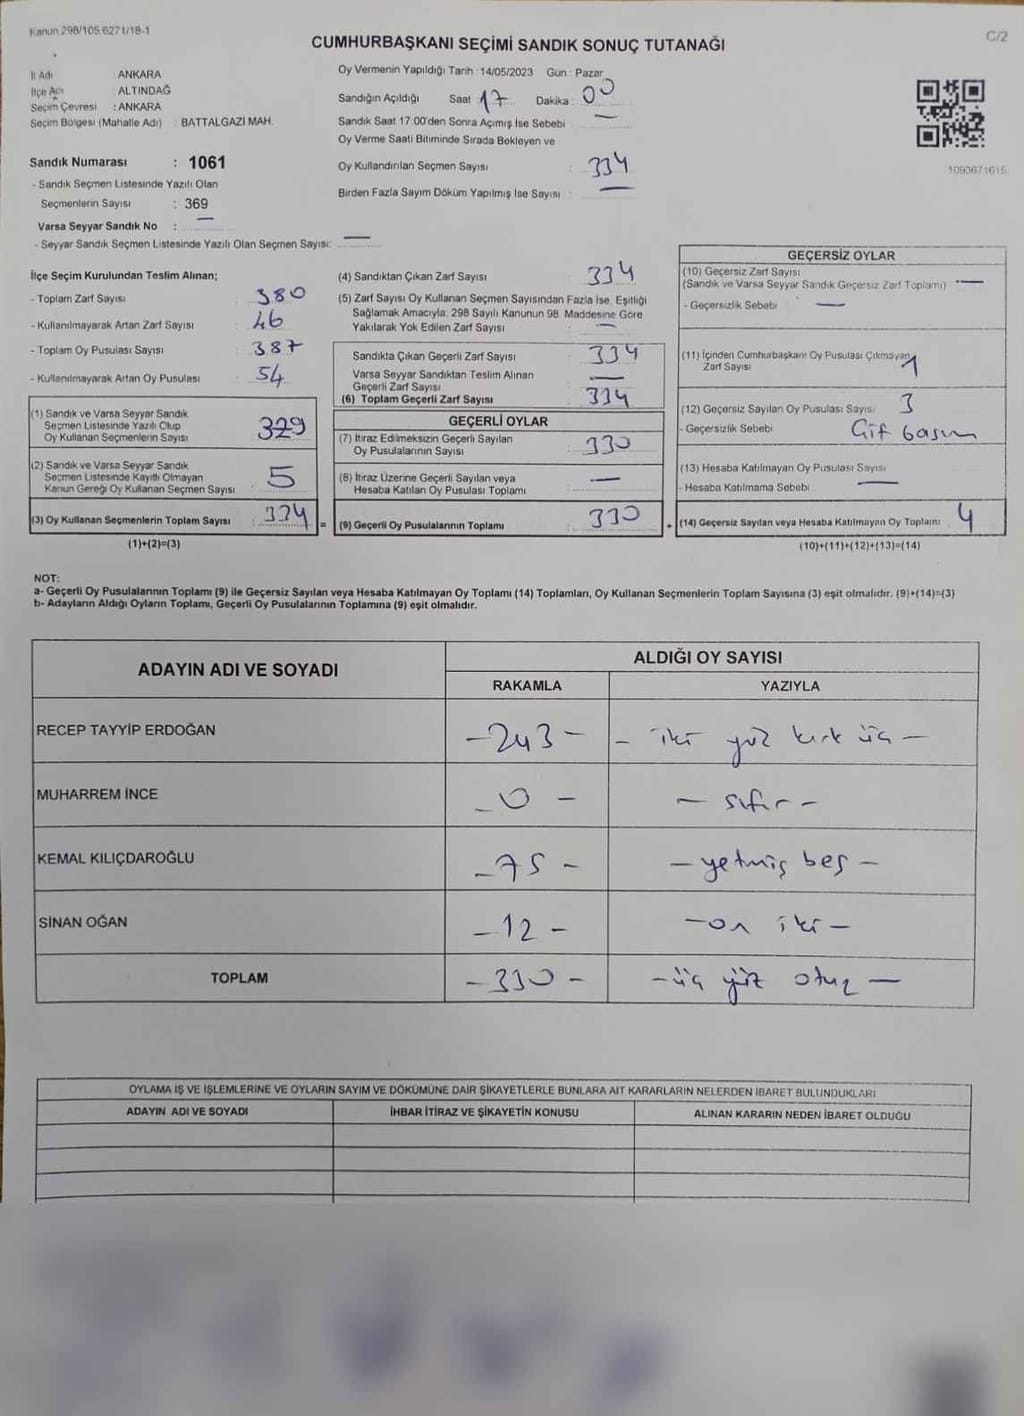 Kanun 298/105,6271/18-1
C/2
CUMHURBAŞKANI SEÇİMİ SANDIK SONUÇ TUTANAĞI
İl Adı : ANKARA
İlçe Adı : ALTINDAĞ
Seçim Çevresi : ANKARA
Seçim Bölgesi (Mahalle Adı) : BATTALGAZİ MAH.
Sandık Numarası : 1061
- Sandık Seçmen Listesinde Yazılı Olan
Seçmenlerin Sayısı : 369
Varsa Seyyar Sandık No : —
- Seyyar Sandık Seçmen Listesinde Yazılı Olan Seçmen Sayısı: —
Oy Vermenin Yapıldığı Tarih : 14/05/2023 Gün : Pazar
Sandığın Açıldığı Saat : 17 Dakika : 00
Sandık Saat 17:00'den Sonra Açımış İse Sebebi : —
Oy Verme Saati Bitiminde Sırada Bekleyen ve
Oy Kullandırılan Seçmen Sayısı : 334
Birden Fazla Sayım Döküm Yapılmış İse Sayısı : —
1093671615
İlçe Seçim Kurulundan Teslim Alınan;
- Toplam Zarf Sayısı : 380
- Kullanılmayarak Artan Zarf Sayısı : 46
- Toplam Oy Pusulası Sayısı : 387
- Kullanılmayarak Artan Oy Pusulası : 54
(1) Sandık ve Varsa Seyyar Sandık
Seçmen Listesinde Yazılı Olup
Oy Kullanan Seçmenlerin Sayısı : 329
(2) Sandık ve Varsa Seyyar Sandık
Seçmen Listesinde Kayıtlı Olmayan
Kanun Gereği Oy Kullanan Seçmen Sayısı : 5
(3) Oy Kullanan Seçmenlerin Toplam Sayısı : 334 =
(1)+(2)=(3)
(4) Sandıktan Çıkan Zarf Sayısı : 334
(5) Zarf Sayısı Oy Kullanan Seçmen Sayısından Fazla İse, Eşitliği
Sağlamak Amacıyla; 298 Sayılı Kanunun 98. Maddesine Göre
Yakılarak Yok Edilen Zarf Sayısı : —
Sandıkta Çıkan Geçerli Zarf Sayısı : 334
Varsa Seyyar Sandıktan Teslim Alınan
Geçerli Zarf Sayısı : —
(6) Toplam Geçerli Zarf Sayısı : 334
GEÇERLİ OYLAR
(7) İtiraz Edilmeksizin Geçerli Sayılan
Oy Pusulalarının Sayısı : 330
(8) İtiraz Üzerine Geçerli Sayılan veya
Hesaba Katılan Oy Pusulası Toplamı : —
(9) Geçerli Oy Pusulalarının Toplamı : 330 +
GEÇERSİZ OYLAR
(10) Geçersiz Zarf Sayısı
(Sandık ve Varsa Seyyar Sandık Geçersiz Zarf Toplamı) : —
- Geçersizlik Sebebi : —
(11) İçinden Cumhurbaşkanı Oy Pusulası Çıkmayan
Zarf Sayısı : 1
(12) Geçersiz Sayılan Oy Pusulası Sayısı : 3
- Geçersizlik Sebebi : Çift basım
(13) Hesaba Katılmayan Oy Pusulası Sayısı
- Hesaba Katılmama Sebebi : —
(14) Geçersiz Sayılan veya Hesaba Katılmayan Oy Toplamı : 4
(10)+(11)+(12)+(13)=(14)
NOT:
a- Geçerli Oy Pusulalarının Toplamı (9) ile Geçersiz Sayılan veya Hesaba Katılmayan Oy Toplamı (14) Toplamları, Oy Kullanan Seçmenlerin Toplam Sayısına (3) eşit olmalıdır. (9)+(14)=(3)
b- Adayların Aldığı Oyların Toplamı, Geçerli Oy Pusulalarının Toplamına (9) eşit olmalıdır.
ADAYIN ADI VE SOYADI ALDIĞI OY SAYISI
RAKAMLA YAZIYLA
RECEP TAYYİP ERDOĞAN - 243 - - iki yüz kırk üç -
MUHARREM İNCE - 0 - - sıfır -
KEMAL KILIÇDAROĞLU - 75 - - yetmiş beş -
SİNAN OĞAN - 12 - - on iki -
TOPLAM - 330 - - üç yüz otuz -
OYLAMA İŞ VE İŞLEMLERİNE VE OYLARIN SAYIM VE DÖKÜMÜNE DAİR ŞİKAYETLERLE BUNLARA AİT KARARLARIN NELERDEN İBARET BULUNDUKLARI
ADAYIN ADI VE SOYADI İHBAR İTİRAZ VE ŞİKAYETİN KONUSU ALINAN KARARIN NEDEN İBARET OLDUĞU